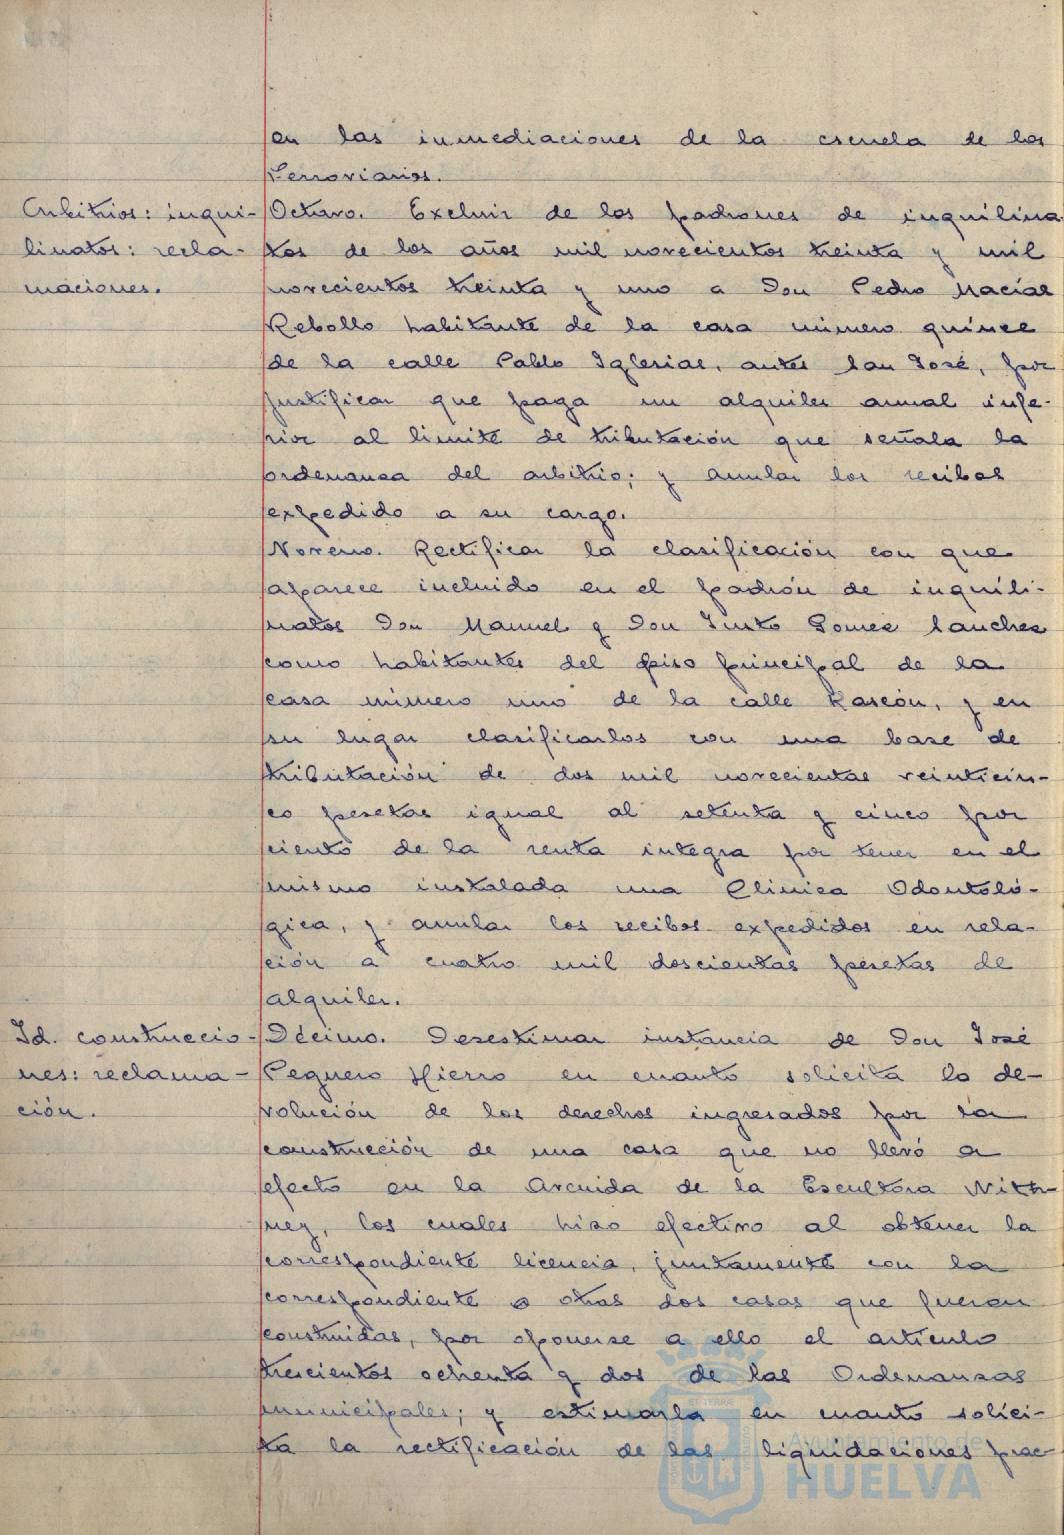 en las inmediaciones de la escuela de los
Ferroviarios.
Arbitrios: inqui-
linatos: recla-
maciones.
Octavo. Excluir de los padrones de inquilina
tos de los años mil novecientos treinta y mil
novecientos treinta y uno a Don Pedro Macías
Rebollo habitante de la casa número quince
de la calle Pablo Iglesias, antes San José, por
justificar que paga un alquiler anual infe-
rior al limite de tributación que señala la
ordenansa del arbitrio; y anular los recibos
expedido a su cargo.
Noveno. Rectificar la clasificación con que
aparece incluido en el padrón de inquili-
natos Don Manuel y Don Justo Gomez Sanchez
como habitantes del piso principal de la
casa número uno de la calle Rascón, y en
su lugar clasificarlos con una base de
tributación de dos mil novecientas veinticin-
co pesetas igual al setenta y cinco por
ciento de la renta integra por tener en el
mismo instalada una Clinica Odontoló-
gica, y anular los recibos expedidos en rela-
ción a cuatro mil doscientas pesetas de
alquiler.
Id. construccio-
nes: reclama-
ción.
Décimo. Desestimar instancia de Don José
Peguero Hierro en cuanto solicita la de-
volución de los derechos ingresados por la
construcción de una casa que no llevó a
efecto en la Avenida de la Escultora With-
ney, los cuales hizo efectivo al obtener la
correspondiente licencia, juntamente con la
correspondiente a otras dos casas que fueron
construidas, por oponerse a ello el artículo
trescientos ochenta y dos de las Ordenansas
municipales; y estimarla en cuanto solici-
ta la rectificación de las liquidaciones prac-
Ayuntamiento de
HUELVA